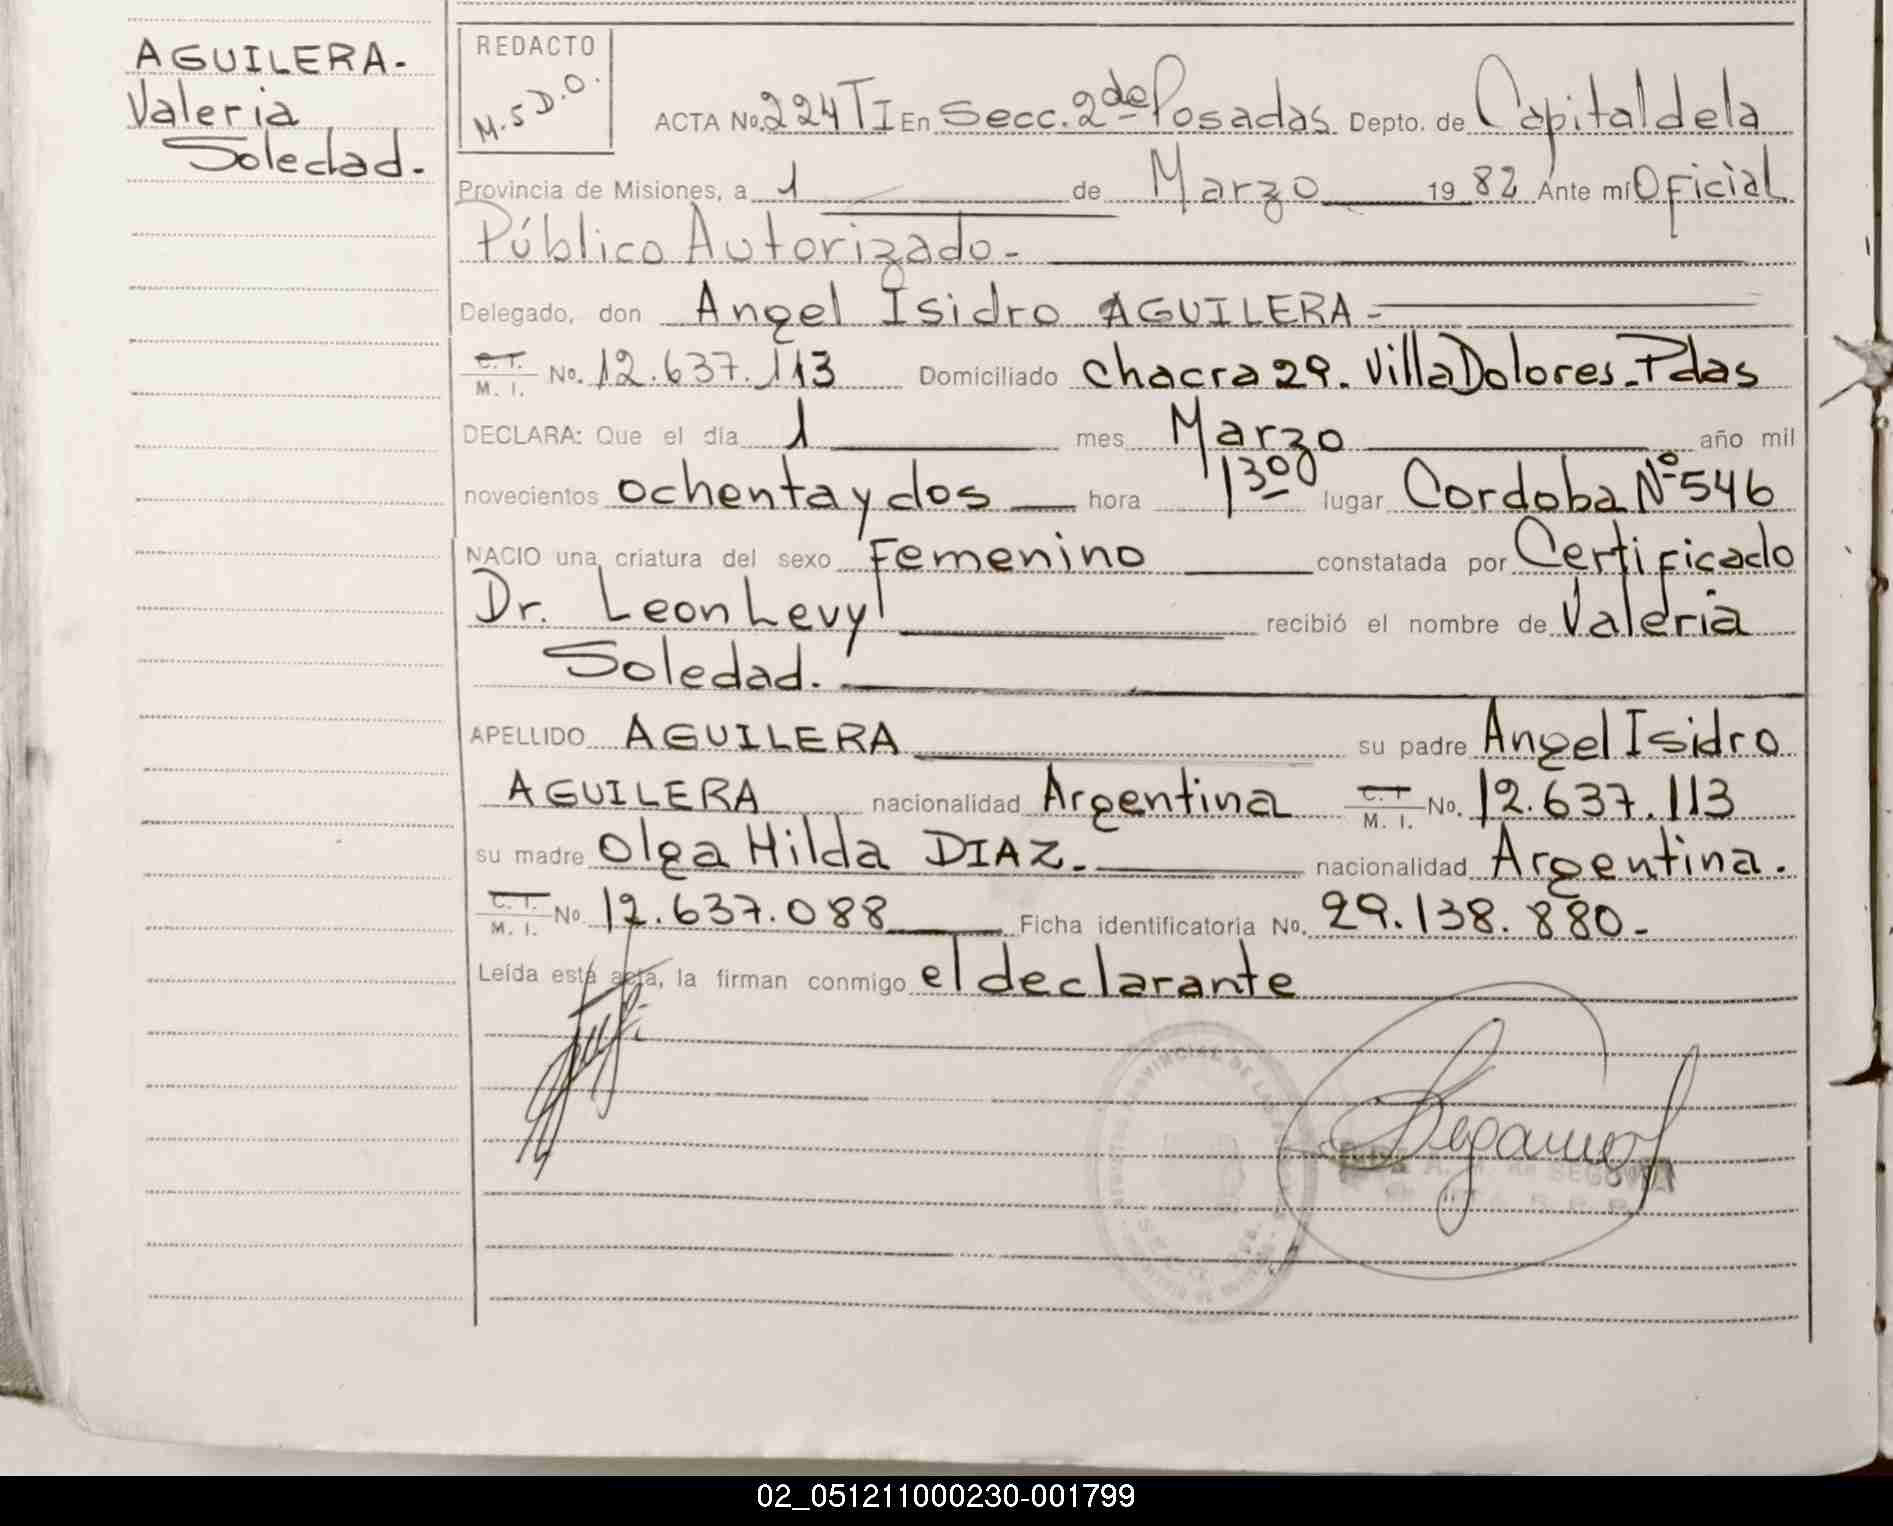 AGUILERA-
Valeria
Soledad.
REDACTO
M.S D.O.
ACTA No. 224 TI En Secc. 2da Posadas Depto. de Capital de la
Provincia de Misiones, a 1 de Marzo 19 82 Ante mí Oficial
Público Autorizado-
Delegado, don Angel Isidro AGUILERA-
C. T. M. I. No. 12.637.113 Domiciliado Chacra 29. Villa Dolores-Pdas
DECLARA: Que el día 1 mes Marzo año mil
novecientos ochenta y dos hora 1 30 lugar Cordoba Nº 546
NACIO una criatura del sexo Femenino constatada por Certificado
Dr. Leon Levy recibió el nombre de Valeria
Soledad.
APELLIDO AGUILERA su padre Angel Isidro
AGUILERA nacionalidad Argentina C. T. M. I. No. 12.637.113
su madre Olga Hilda DIAZ.- nacionalidad Argentina.
C. T. M. I. No. 12.637.088 Ficha identificatoria No. 29.138.880-
Leída está acta, la firman conmigo el declarante
PROVINCIAL DE LAS
A. de SEGOVIA
02_051211000230-001799